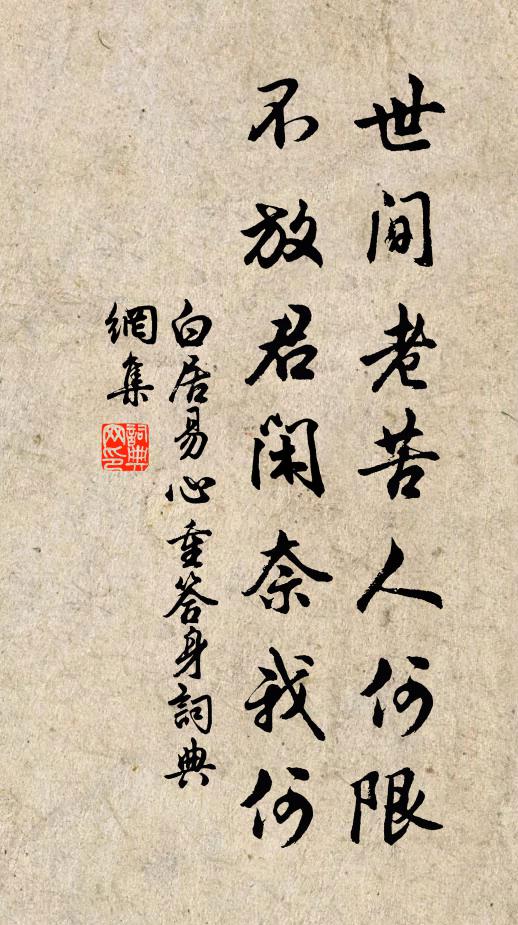 世間老苦人何限
不放君閑奈我何
白居易心重答身詞典
網集
詞典
网印